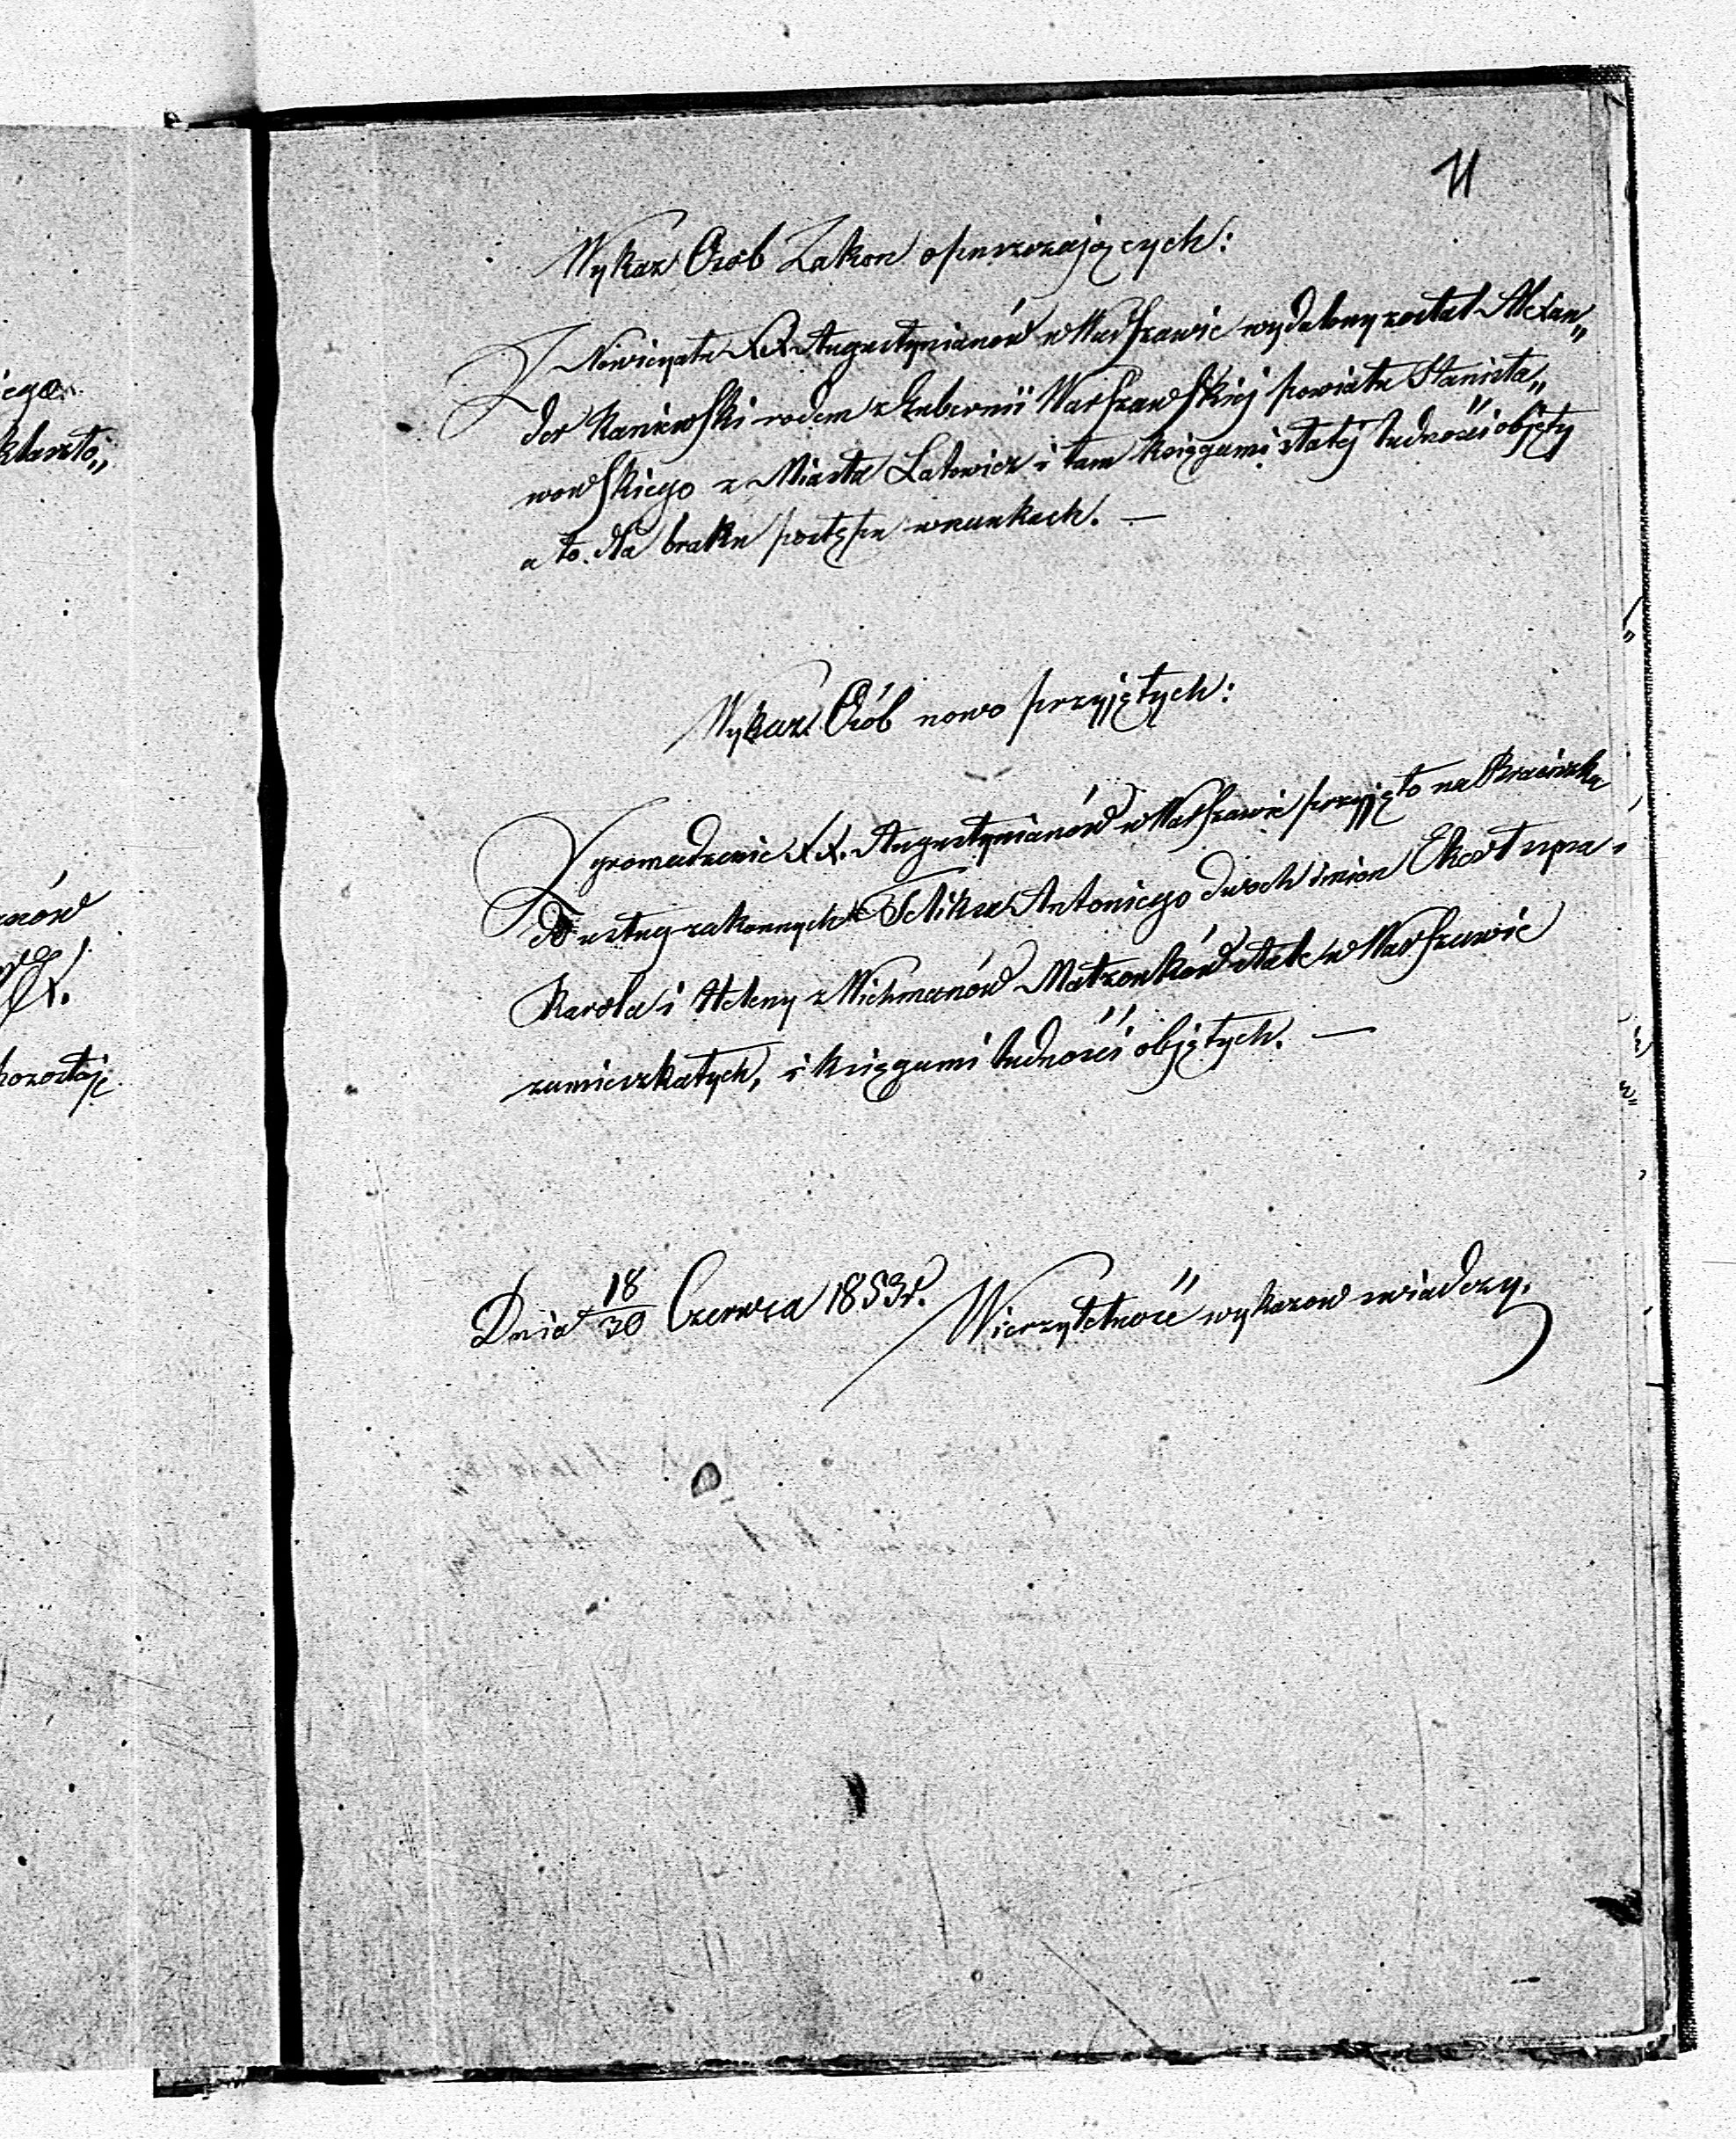 11
Wykaz Osób Zakon opuszczających:
Z Nowicyatu XX Augustynianów w Warszawie wydalony został Alexan„
der Kaniewski rodem z Gubernii Warszawskiej powiatu Stanisła„
wowskiego z Miasta Latowicz i tam księgami stałej ludności objęty
a to dla braku postępu w naukach. —
Wykaz Osób nowo przyjętych:
Zgromadzenie XX. Augustynianów w Warszawie przyjęło na Braciszka
do usług zakonnych Felixa Antoniego dwoch imion
Karola i Heleny z Wichmanów Małzonków stale w Warszawie
zamieszkałych, i księgami ludności objętych. —
Dnia 18/30 Czerwca 1853 r. Wierzytelność wykazow swiadczy.
iego.
klaszto„
anów
pozostaje